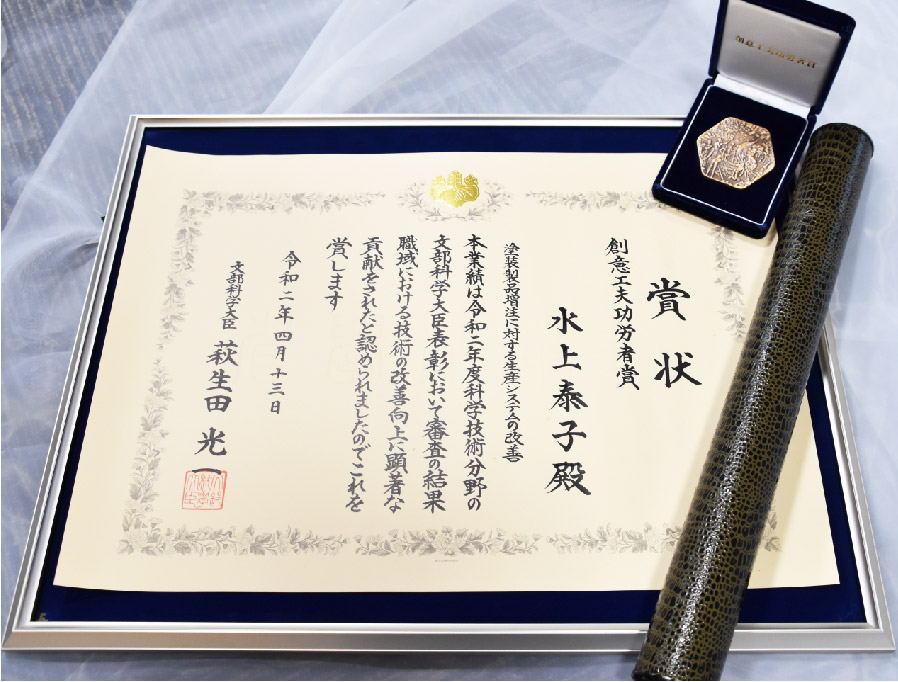 賞状
創意工夫功労者賞
水上泰子殿
塗装製品増注に対する生産システムの改善
本業績は令和二年度科学技術分野の
文部科学大臣表彰において審査の結果
職域における技術の改善向上に顕著な
貢献をされたと認められましたのでこれを
賞します
令和二年四月十三日
文部科学大臣 萩生田光一